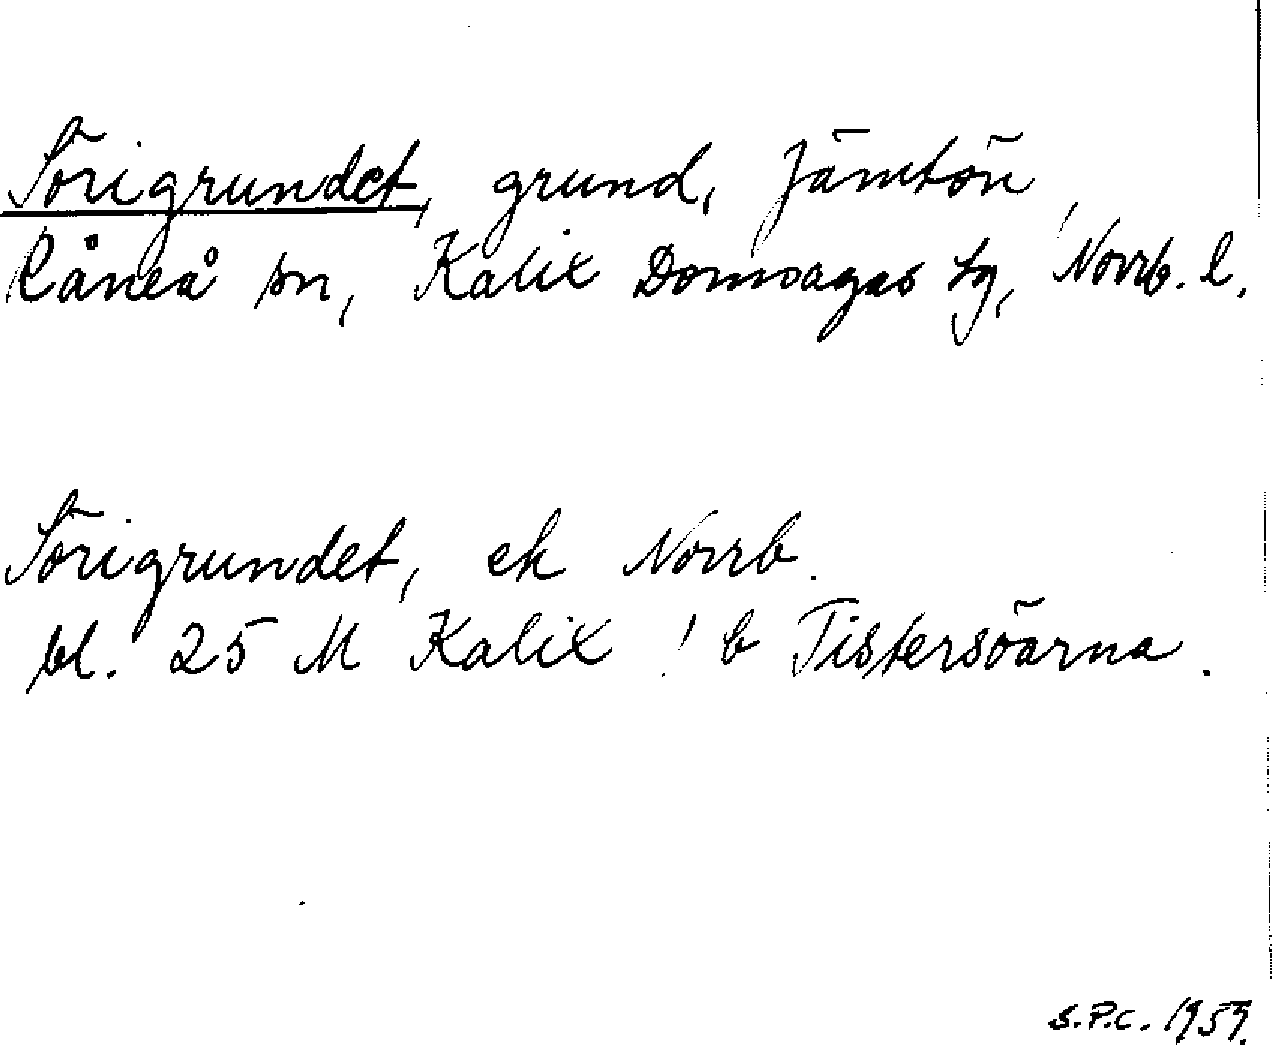 Sörigrundet, grund, Jämtön,
Råneå sn, Kalix Domsagas tg, Norrb. l.
Sörigrundet, ek Norrb.
bl. 25 M Kalix ! b Tistersöarna.
S.P.C. 1959.